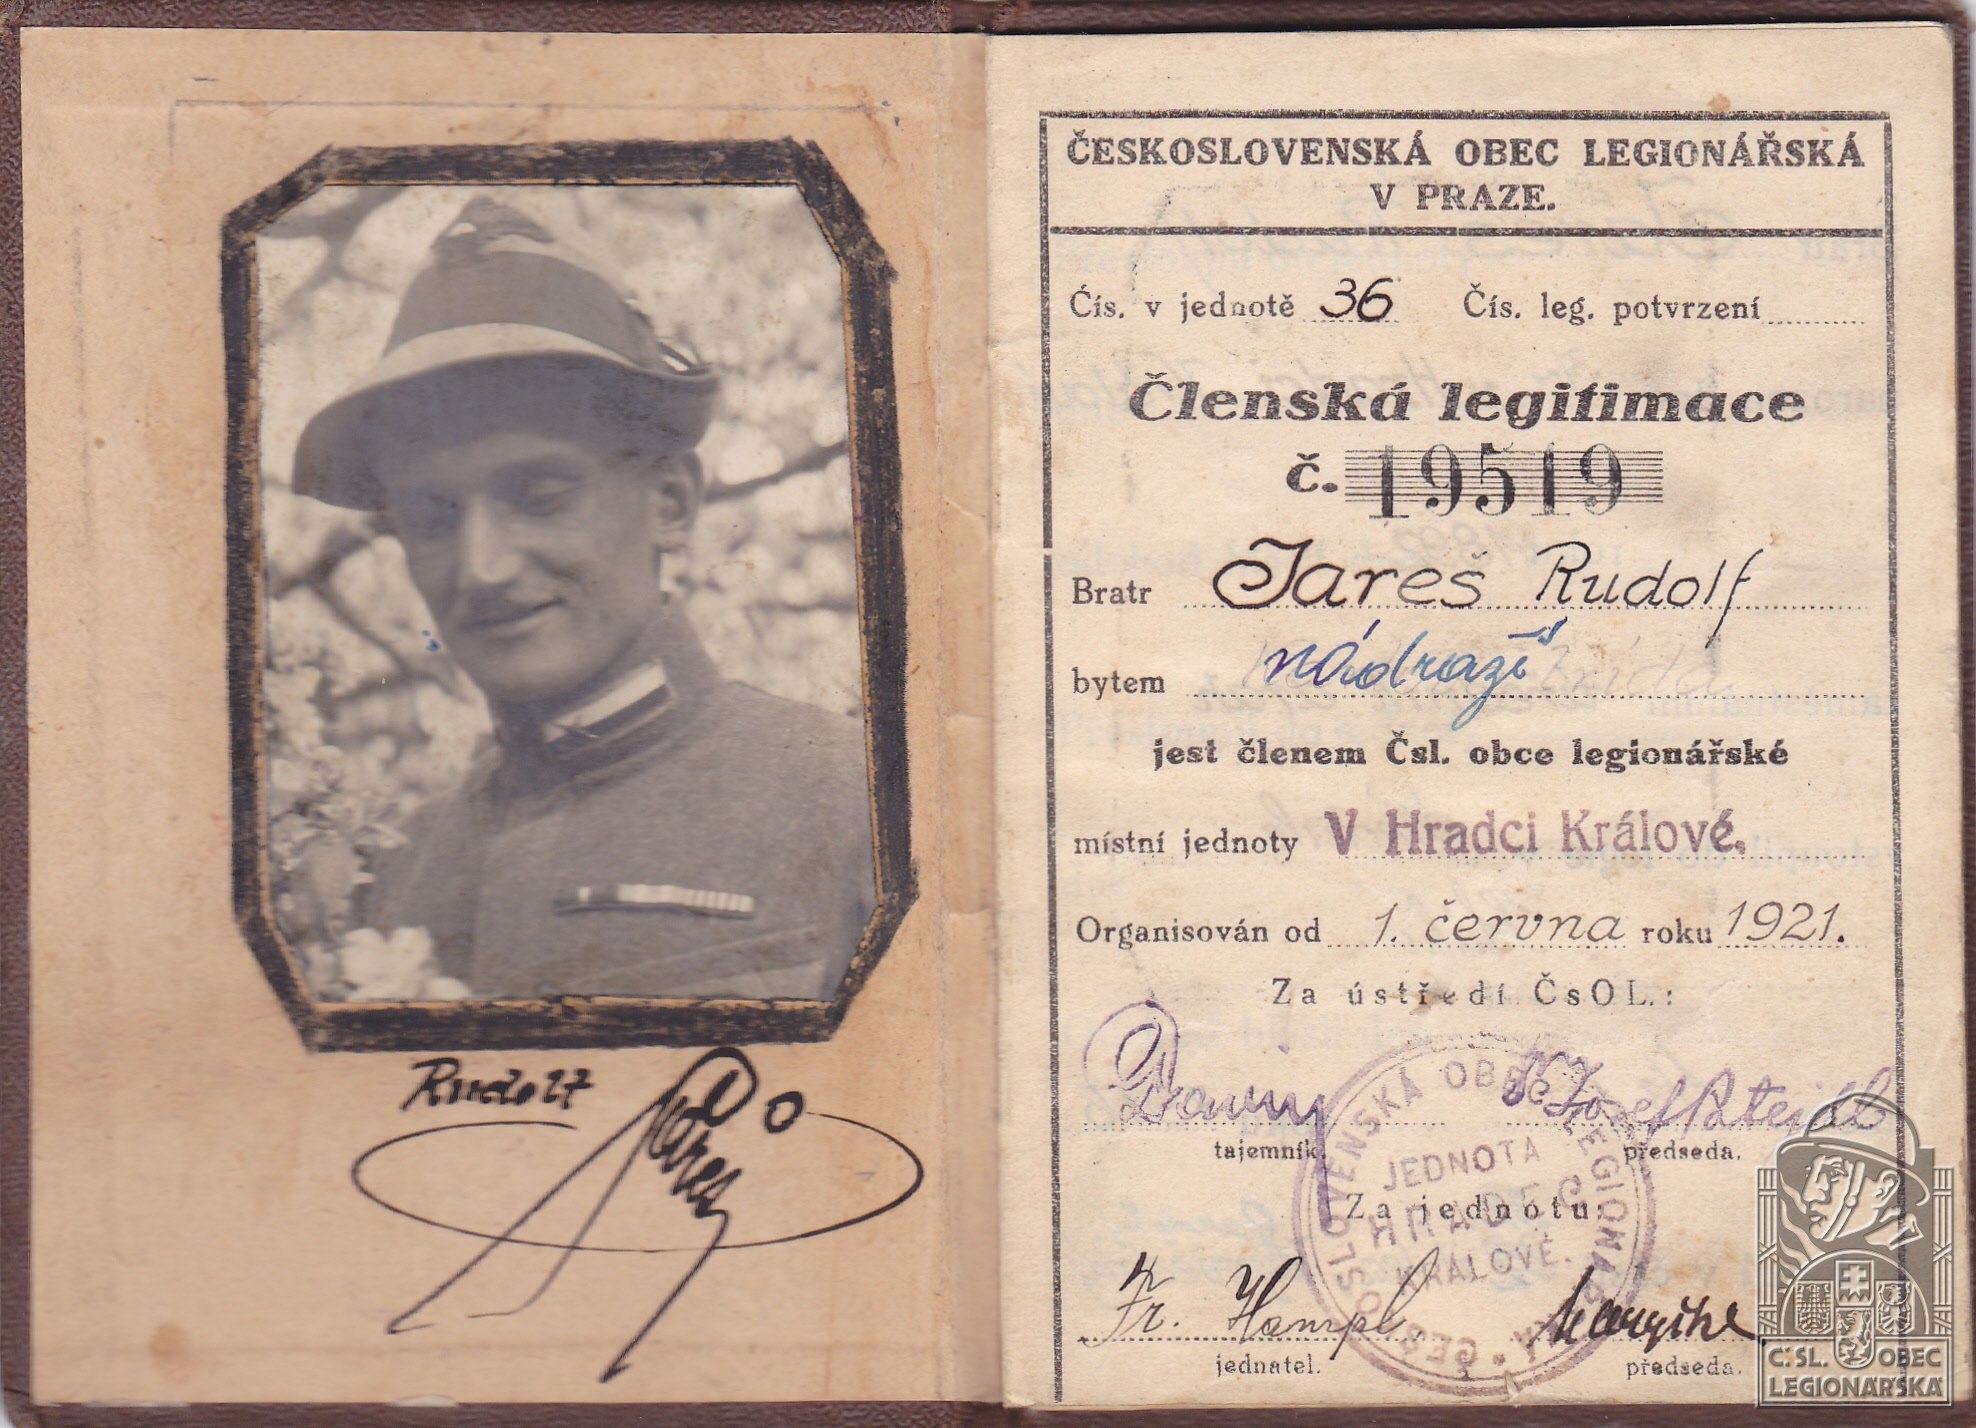 Rudolf
Jareš
ČESKOSLOVENSKÁ OBEC LEGIONÁŘSKÁ
V PRAZE.
Čís. v jednotě 36 Čís. leg. potvrzení
Členská legitimace
č. 19519
Bratr Jareš Rudolf
bytem nádraží
jest členem Čsl. obce legionářské
místní jednoty V Hradci Králové.
Organisován od 1. června roku 1921.
Za ústředí ČsOL.:
Josef Patejdl
tajemník. předseda.
Za jednotu:
Fr. Hampl
jednatel. předseda.
ČESKOSLOVENSKÁ OBEC LEGIONÁŘSKÁ
JEDNOTA
HRADEC
KRÁLOVÉ.
ČSL. OBEC
LEGIONÁŘSKÁ